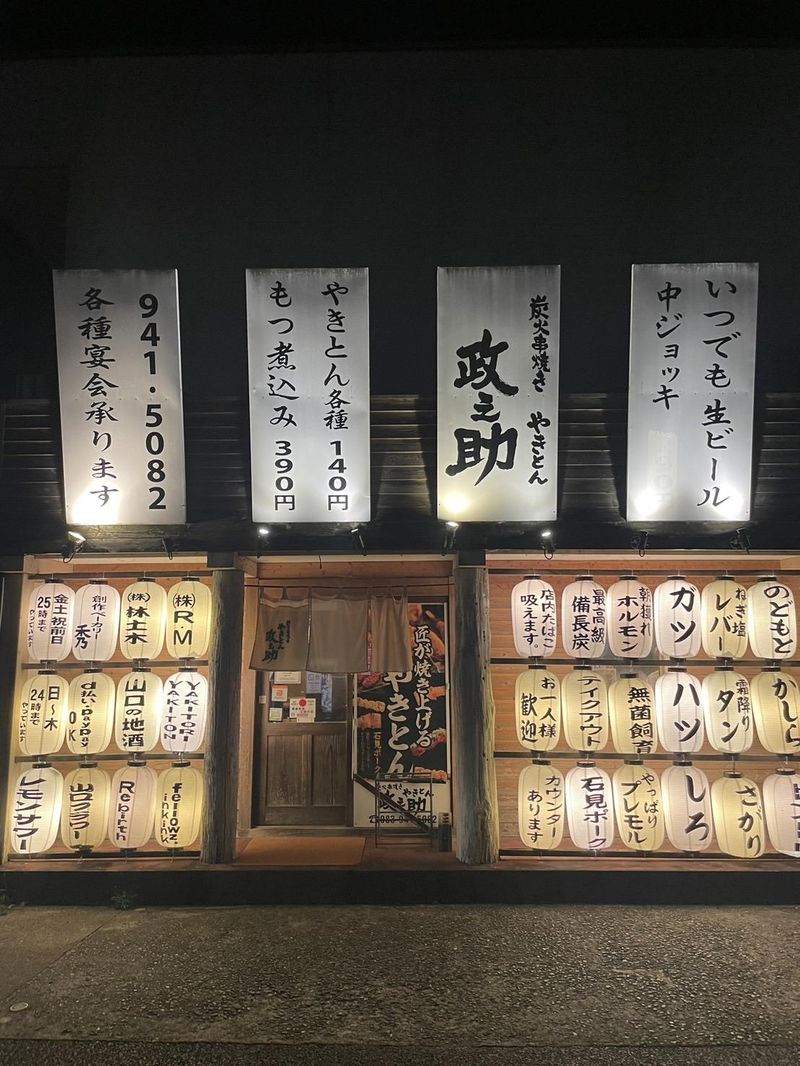 いつでも生ビール
中ジョッキ
炭火串焼き やきとん
政之助
やきとん各種 140円
もつ煮込み 390円
941・5082
各種宴会承ります
のどもと
ねぎ塩
レバー
ガツ
朝積れ
ホルモン
最高級
備長炭
店内たばこ
吸えます。
かしら
霜降り
タン
ハツ
無菌飼育
テイクアウト
お一人様
歓迎
さがり
しろ
やっぱり
プレモル
石見ポーク
カウンター
あります
やきとん
政之助
匠が焼き上げる
やきとん
石見ポーク
やきとん
政之助
(株)RM
(株)林土木
創作ベーカリー
禾乃
金土祝前日
25時まで
やっています
YAKITORI
YAKITON
山口の地酒
d払い paypay
OK
日〜木
24時まで
やっています
fellowz.
inkink
Rebirth
山口クラフト
レモンサワー